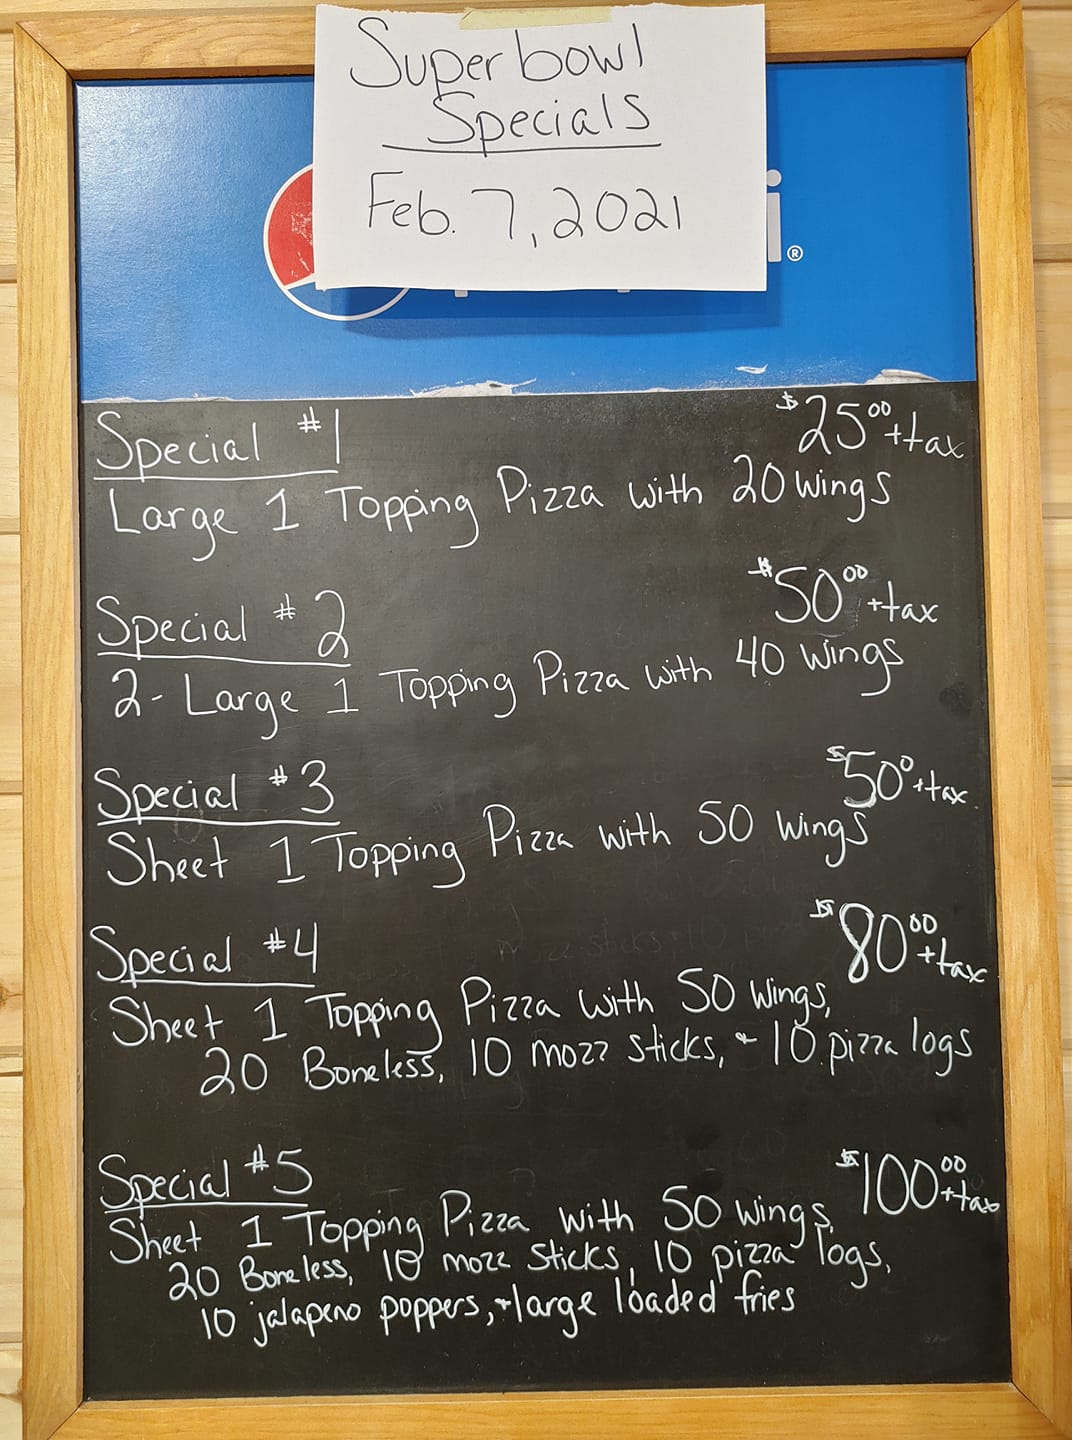 Superbowl
Specials
Feb. 7, 2021
i®
Special #1 $25⁰⁰ + tax
Large 1 Topping Pizza with 20 wings
Special #2 $50⁰⁰ + tax
2 - Large 1 Topping Pizza with 40 wings
Special #3 $50⁰ + tax
Sheet 1 Topping Pizza with 50 wings
Special #4 $80⁰⁰ + tax
Sheet 1 Topping Pizza with 50 wings,
20 Boneless, 10 mozz sticks, + 10 pizza logs
Special #5 $100⁰⁰ + tax
Sheet 1 Topping Pizza with 50 wings,
20 Boneless, 10 mozz sticks, 10 pizza logs,
10 jalapeno poppers, + large loaded fries